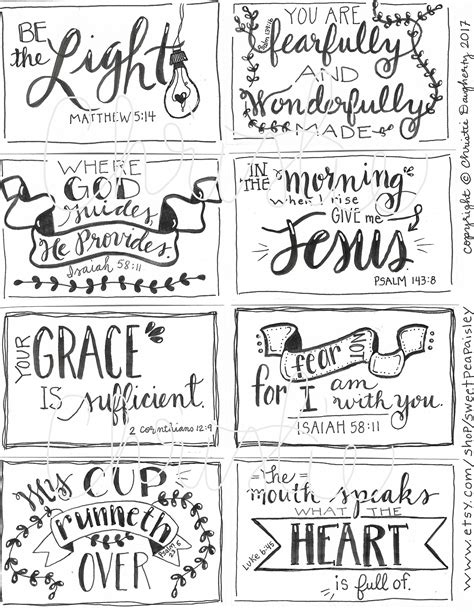 BE
the Light
MATTHEW 5:14
YOU ARE
fearfully
AND
Wonderfully
MADE
Psalm 139:14
WHERE
GOD
Guides,
He Provides.
Isaiah 58:11
IN
THE morning
when I rise
GIVE me
JESUS.
PSALM 143:8
YOUR GRACE
IS sufficient.
2 corinthians 12:9
fear NOT
for I am
with you.
ISAIAH 58:11
My CUP
runneth
OVER
Psalm 23:5
The
mouth speaks
WHAT THE
HEART
is full of.
Luke 6:45
copyright © Christie Daugherty 2017
www.etsy.com/shop/sweetPeaPaisley